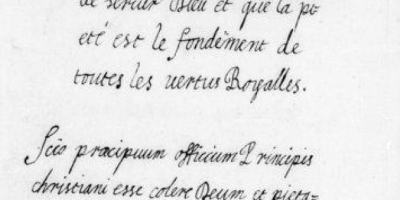 de servir Dieu et que la pi-
eté est le fondement de
toutes les vertus Royalles.
Scio præcipuum officium Principis
christiani esse colere Deum et pieta-